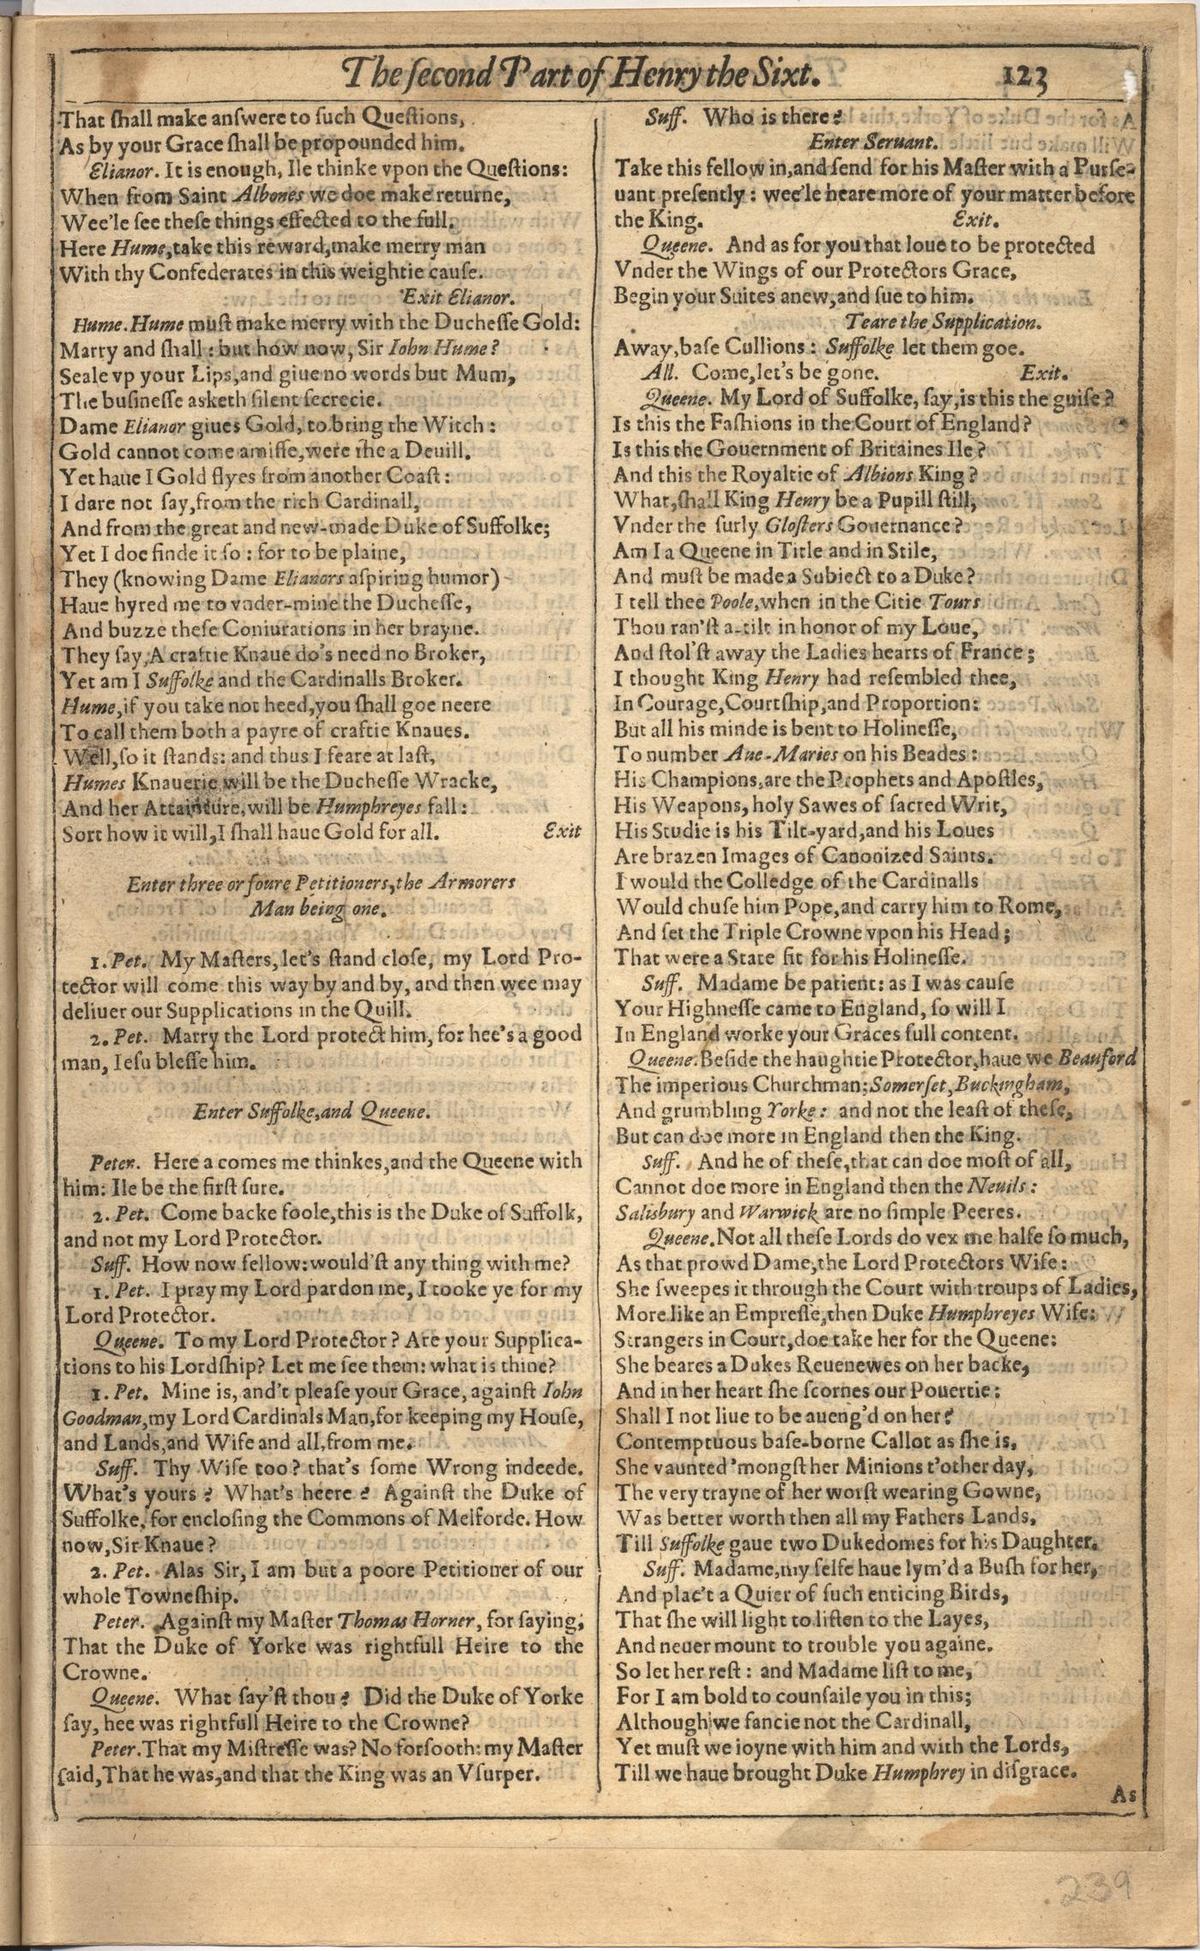 The second Part of Henry the Sixt.
123
That shall make answere to such Questions,
As by your Grace shall be propounded him.
Elianor. It is enough, Ile thinke vpon the Questions:
When from Saint Albones we doe make returne,
Wee'le see these things effected to the full.
Here Hume, take this reward, make merry man
With thy Confederates in this weightie cause.
Exit Elianor.
Hume. Hume must make merry with the Duchesse Gold:
Marry and shall: but how now, Sir Iohn Hume?
Seale vp your Lips, and giue no words but Mum,
The businesse asketh silent secrecie.
Dame Elianor giues Gold, to bring the Witch:
Gold cannot come amisse, were she a Deuill.
Yet haue I Gold flyes from another Coast:
I dare not say, from the rich Cardinall,
And from the great and new-made Duke of Suffolke;
Yet I doe finde it so: for to be plaine,
They (knowing Dame Elianors aspiring humor)
Haue hyred me to vnder-mine the Duchesse,
And buzze these Coniurations in her brayne.
They say, A craftie Knaue do's need no Broker,
Yet am I Suffolke and the Cardinalls Broker.
Hume, if you take not heed, you shall goe neere
To call them both a payre of craftie Knaues.
Well, so it stands: and thus I feare at last,
Humes Knauerie will be the Duchesse Wracke,
And her Attainture, will be Humphreyes fall:
Sort how it will, I shall haue Gold for all. Exit
Enter three or foure Petitioners, the Armorers
Man being one.
1. Pet. My Masters, let's stand close, my Lord Pro-
tector will come this way by and by, and then wee may
deliuer our Supplications in the Quill.
2. Pet. Marry the Lord protect him, for hee's a good
man, Iesu blesse him.
Enter Suffolke, and Queene.
Peter. Here a comes me thinkes, and the Queene with
him: Ile be the first sure.
2. Pet. Come backe foole, this is the Duke of Suffolk,
and not my Lord Protector.
Suff. How now fellow: would'st any thing with me?
1. Pet. I pray my Lord pardon me, I tooke ye for my
Lord Protector.
Queene. To my Lord Protector? Are your Supplica-
tions to his Lordship? Let me see them: what is thine?
1. Pet. Mine is, and't please your Grace, against Iohn
Goodman, my Lord Cardinals Man, for keeping my House,
and Lands, and Wife and all, from me.
Suff. Thy Wife too? that's some Wrong indeede.
What's yours? What's heere? Against the Duke of
Suffolke, for enclosing the Commons of Melforde. How
now, Sir Knaue?
2. Pet. Alas Sir, I am but a poore Petitioner of our
whole Towneship.
Peter. Against my Master Thomas Horner, for saying,
That the Duke of Yorke was rightfull Heire to the
Crowne.
Queene. What say'st thou? Did the Duke of Yorke
say, hee was rightfull Heire to the Crowne?
Peter. That my Mistresse was? No forsooth: my Master
said, That he was, and that the King was an Vsurper.
Suff. Who is there?
Enter Seruant.
Take this fellow in, and send for his Master with a Purse-
uant presently: wee'le heare more of your matter before
the King. Exit.
Queene. And as for you that loue to be protected
Vnder the Wings of our Protectors Grace,
Begin your Suites anew, and sue to him.
Teare the Supplication.
Away, base Cullions: Suffolke let them goe.
All. Come, let's be gone. Exit.
Queene. My Lord of Suffolke, say, is this the guise?
Is this the Fashions in the Court of England?
Is this the Gouernment of Britaines Ile?
And this the Royaltie of Albions King?
What, shall King Henry be a Pupill still,
Vnder the surly Glosters Gouernance?
Am I a Queene in Title and in Stile,
And must be made a Subiect to a Duke?
I tell thee Poole, when in the Citie Tours
Thou ran'st a-tilt in honor of my Loue,
And stol'st away the Ladies hearts of France;
I thought King Henry had resembled thee,
In Courage, Courtship, and Proportion:
But all his minde is bent to Holinesse,
To number Aue-Maries on his Beades:
His Champions, are the Prophets and Apostles,
His Weapons, holy Sawes of sacred Writ,
His Studie is his Tilt-yard, and his Loues
Are brazen Images of Canonized Saints.
I would the Colledge of the Cardinalls
Would chuse him Pope, and carry him to Rome,
And set the Triple Crowne vpon his Head;
That were a State fit for his Holinesse.
Suff. Madame be patient: as I was cause
Your Highnesse came to England, so will I
In England worke your Graces full content.
Queene. Beside the haughtie Protector, haue we Beauford
The imperious Churchman; Somerset, Buckingham,
And grumbling Yorke: and not the least of these,
But can doe more in England then the King.
Suff. And he of these, that can doe most of all,
Cannot doe more in England then the Neuils:
Salisbury and Warwick are no simple Peeres.
Queene. Not all these Lords do vex me halfe so much,
As that prowd Dame, the Lord Protectors Wife:
She sweepes it through the Court with troups of Ladies,
More like an Empresse, then Duke Humphreyes Wife:
Strangers in Court, doe take her for the Queene:
She beares a Dukes Reuenewes on her backe,
And in her heart she scornes our Pouertie:
Shall I not liue to be aueng'd on her?
Contemptuous base-borne Callot as she is,
She vaunted 'mongst her Minions t'other day,
The very trayne of her worst wearing Gowne,
Was better worth then all my Fathers Lands,
Till Suffolke gaue two Dukedomes for his Daughter.
Suff. Madame, my selfe haue lym'd a Bush for her,
And plac't a Quier of such enticing Birds,
That she will light to listen to the Layes,
And neuer mount to trouble you againe.
So let her rest: and Madame list to me,
For I am bold to counsaile you in this;
Although we fancie not the Cardinall,
Yet must we ioyne with him and with the Lords,
Till we haue brought Duke Humphrey in disgrace.
As
239